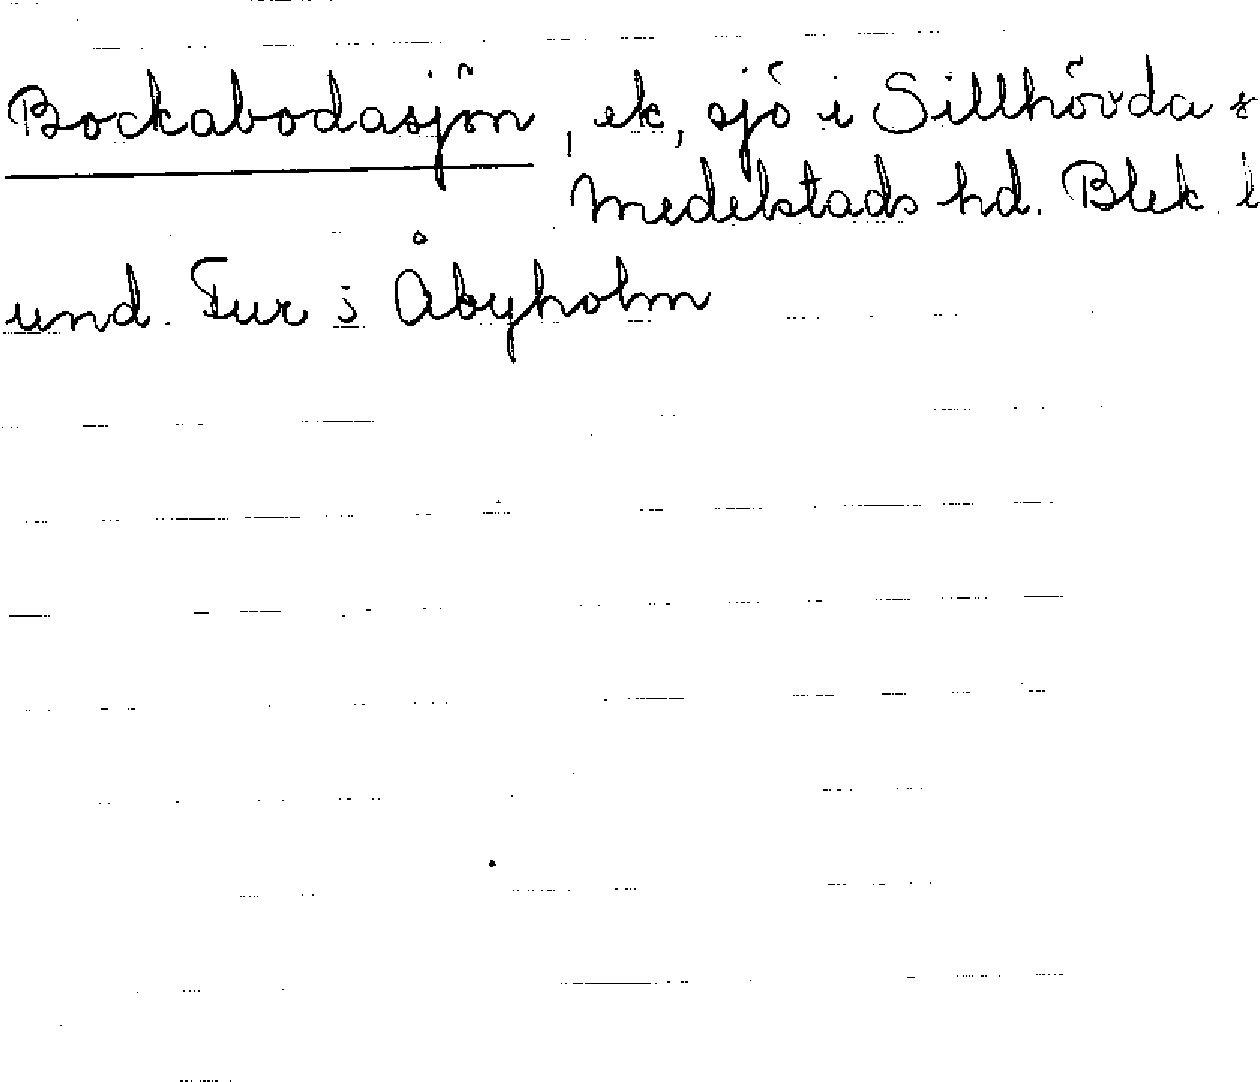 Bockabodasjön, ek, sjö i Sillhövda s
Medelstads hd. Blek. l
und. Fur s Åbyholm